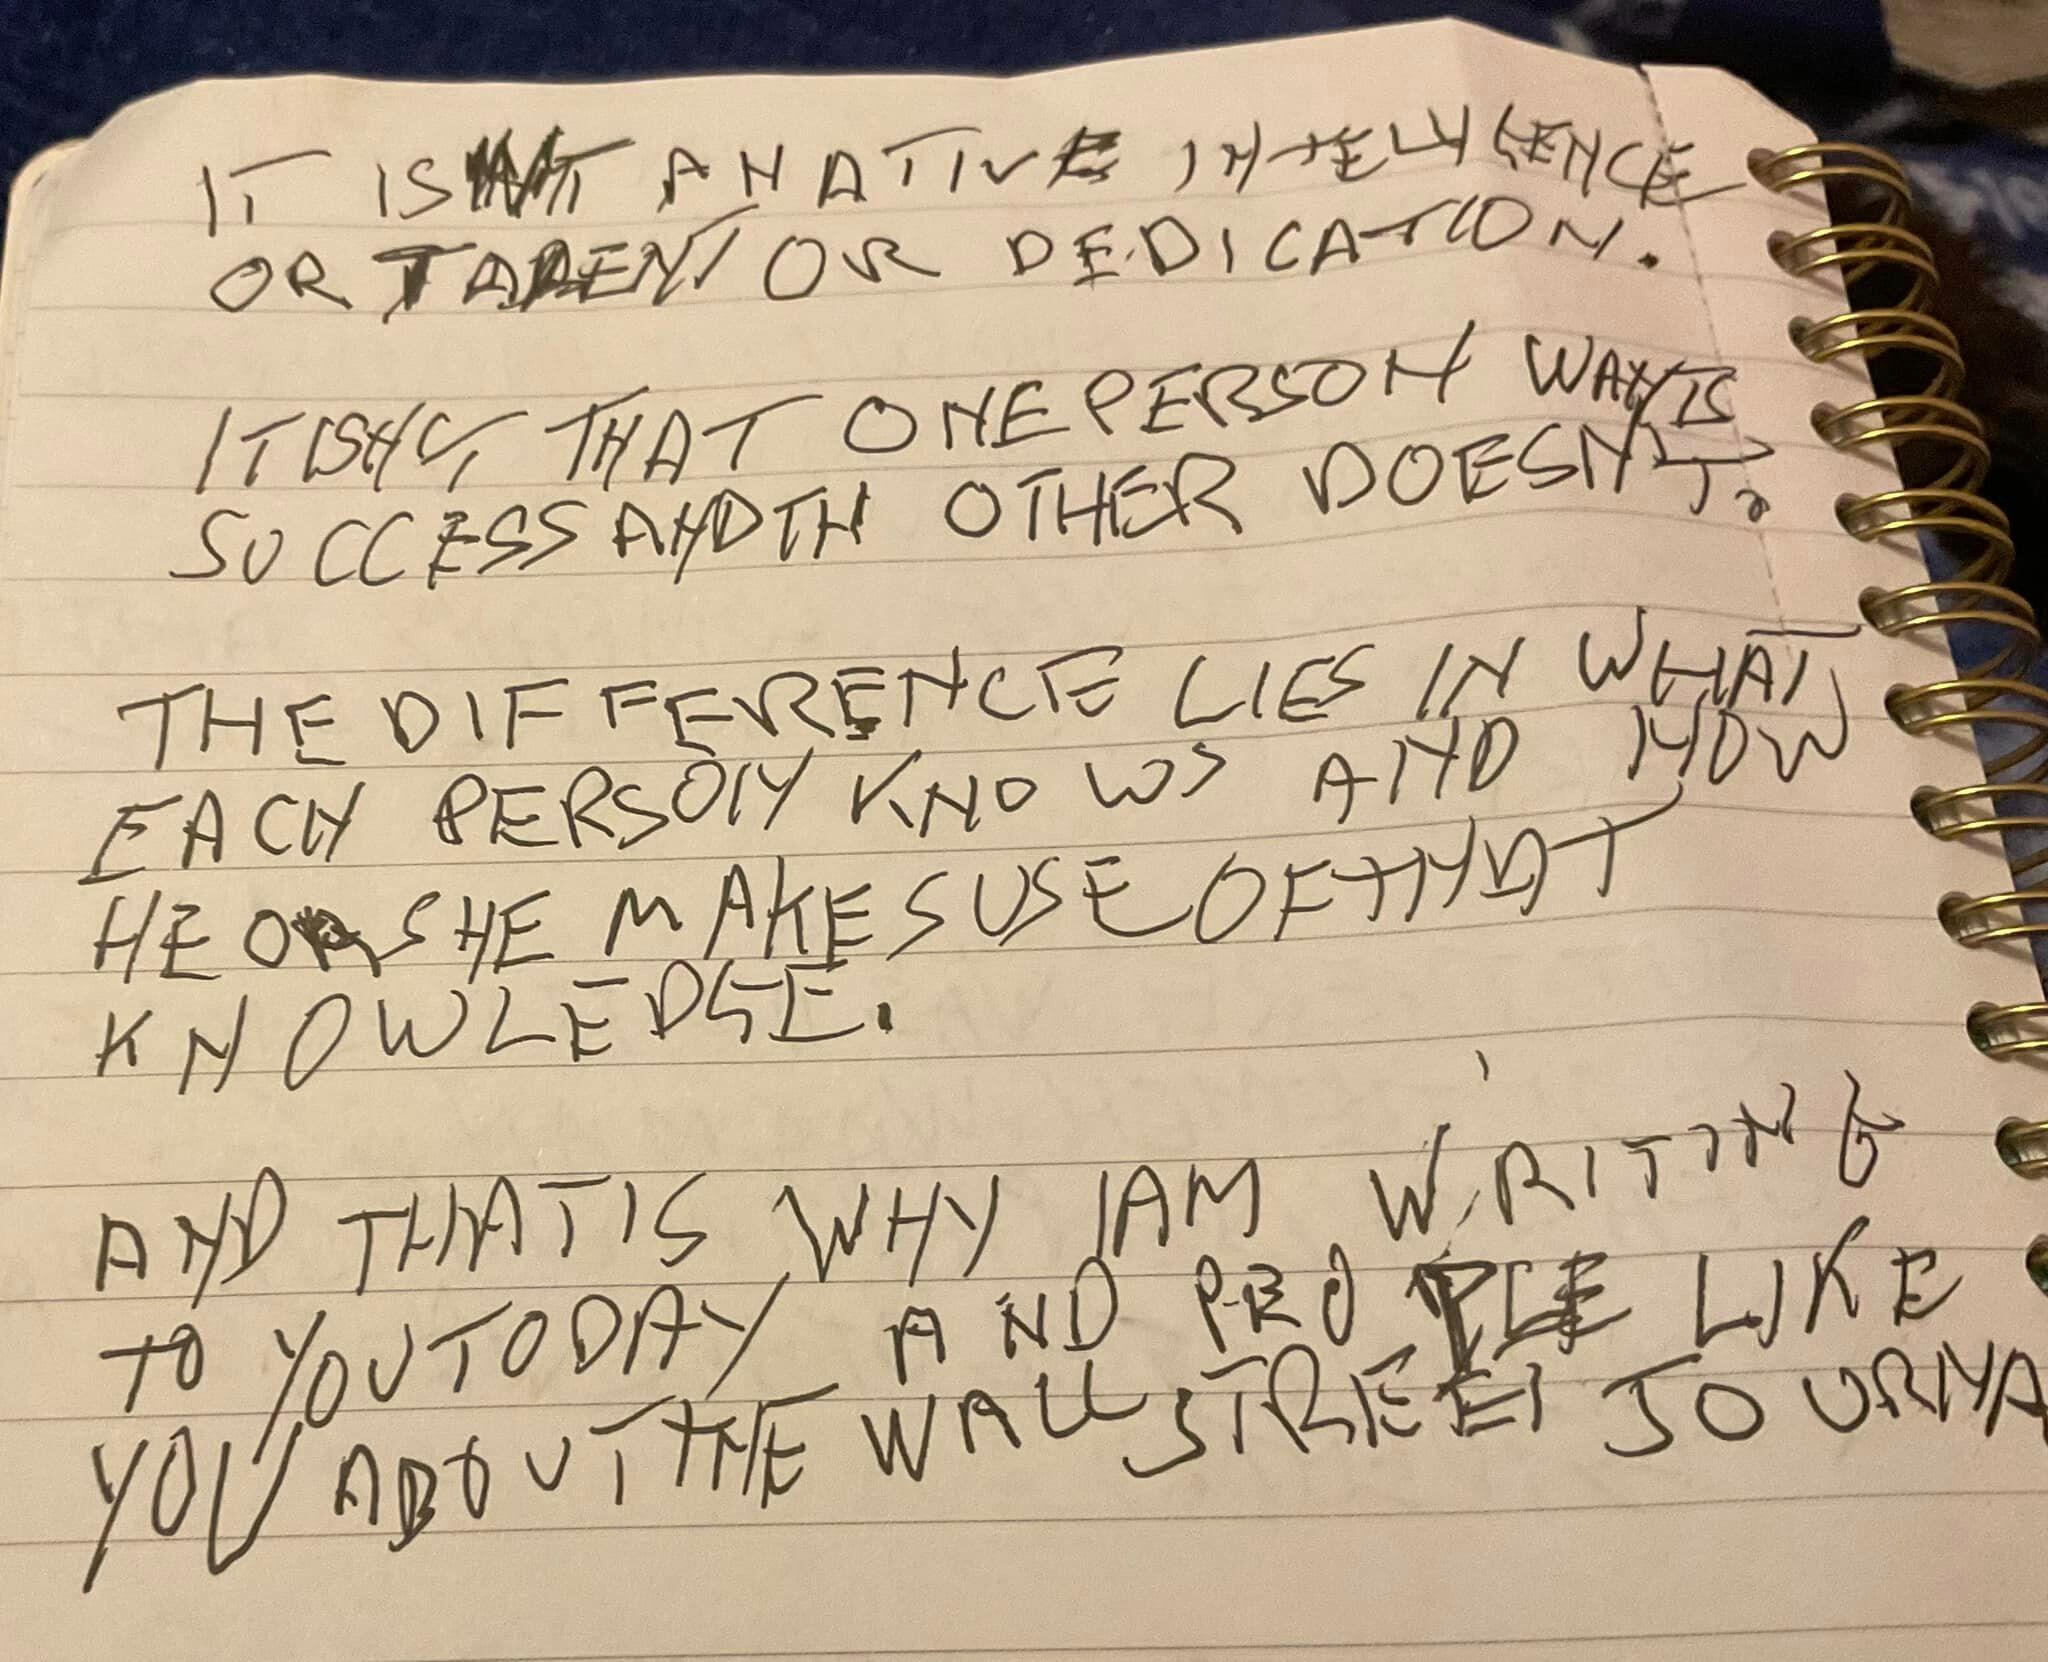 IT ISN'T A NATIVE INTELLIGENCE
OR TALENT OR DEDICATION.
IT ISN'T THAT ONE PERSON WANTS
SUCCESS AND TH OTHER DOESN'T.
THE DIFFERENCE LIES IN WHAT
EACH PERSON KNOWS AND HOW
HE OR SHE MAKES USE OF THAT
KNOWLEDGE.
AND THAT IS WHY I AM WRITING
TO YOU TODAY AND PEOPLE LIKE
YOU ABOUT THE WALL STREET JOURNA